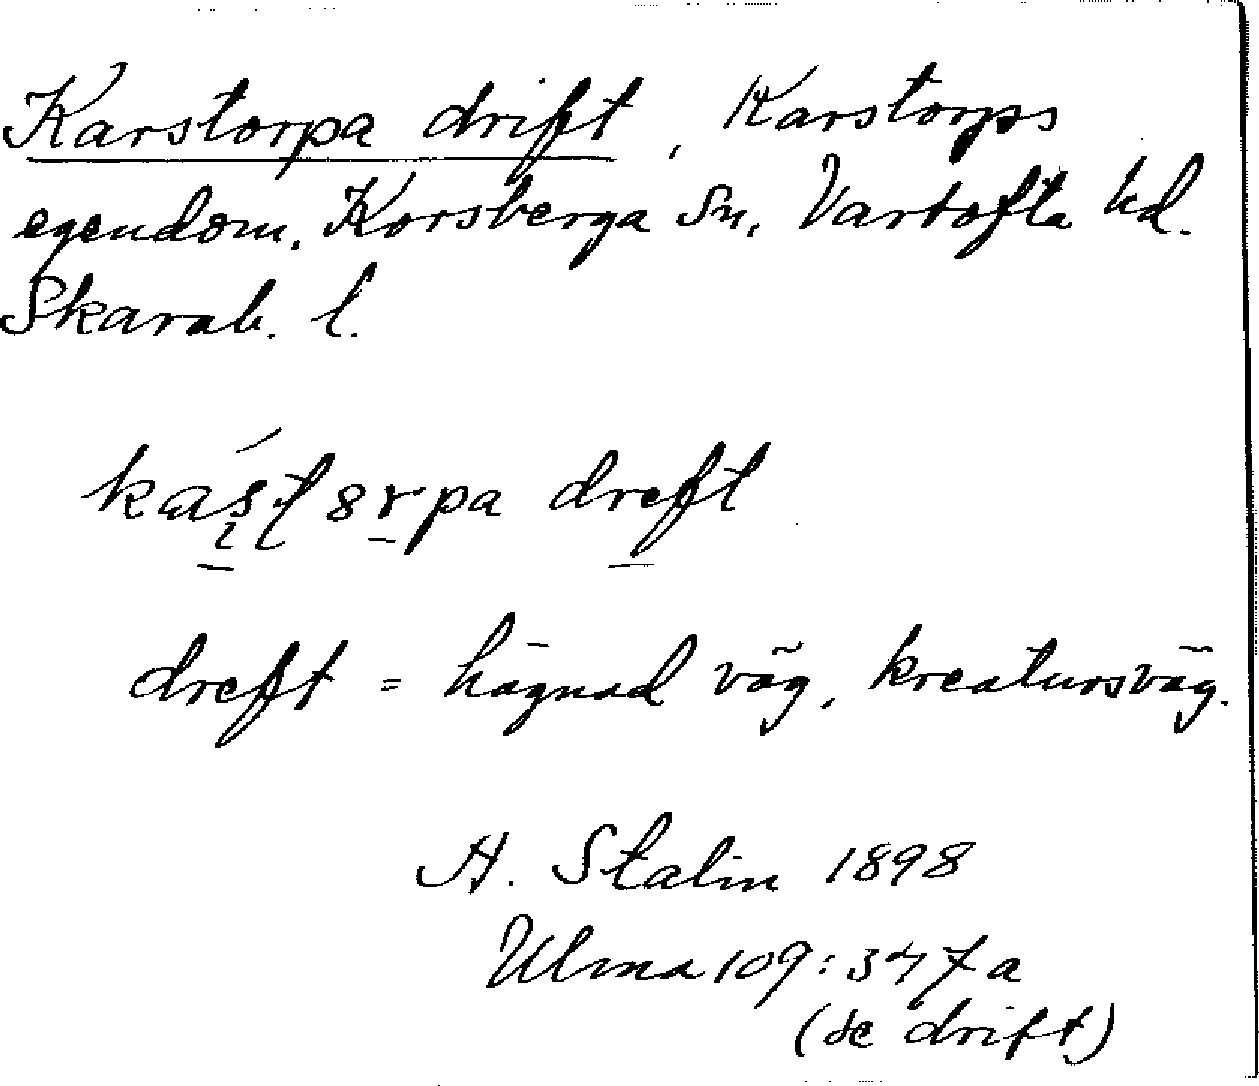 Karstorpa drift, Karstorps
egendom. Korsberga Sn, Vartofta hd.
Skarab. l.
dreft
dreft = hägnad väg, kreatursväg.
A. Stalin 1898
Ulma 109: 347 a
(se drift)